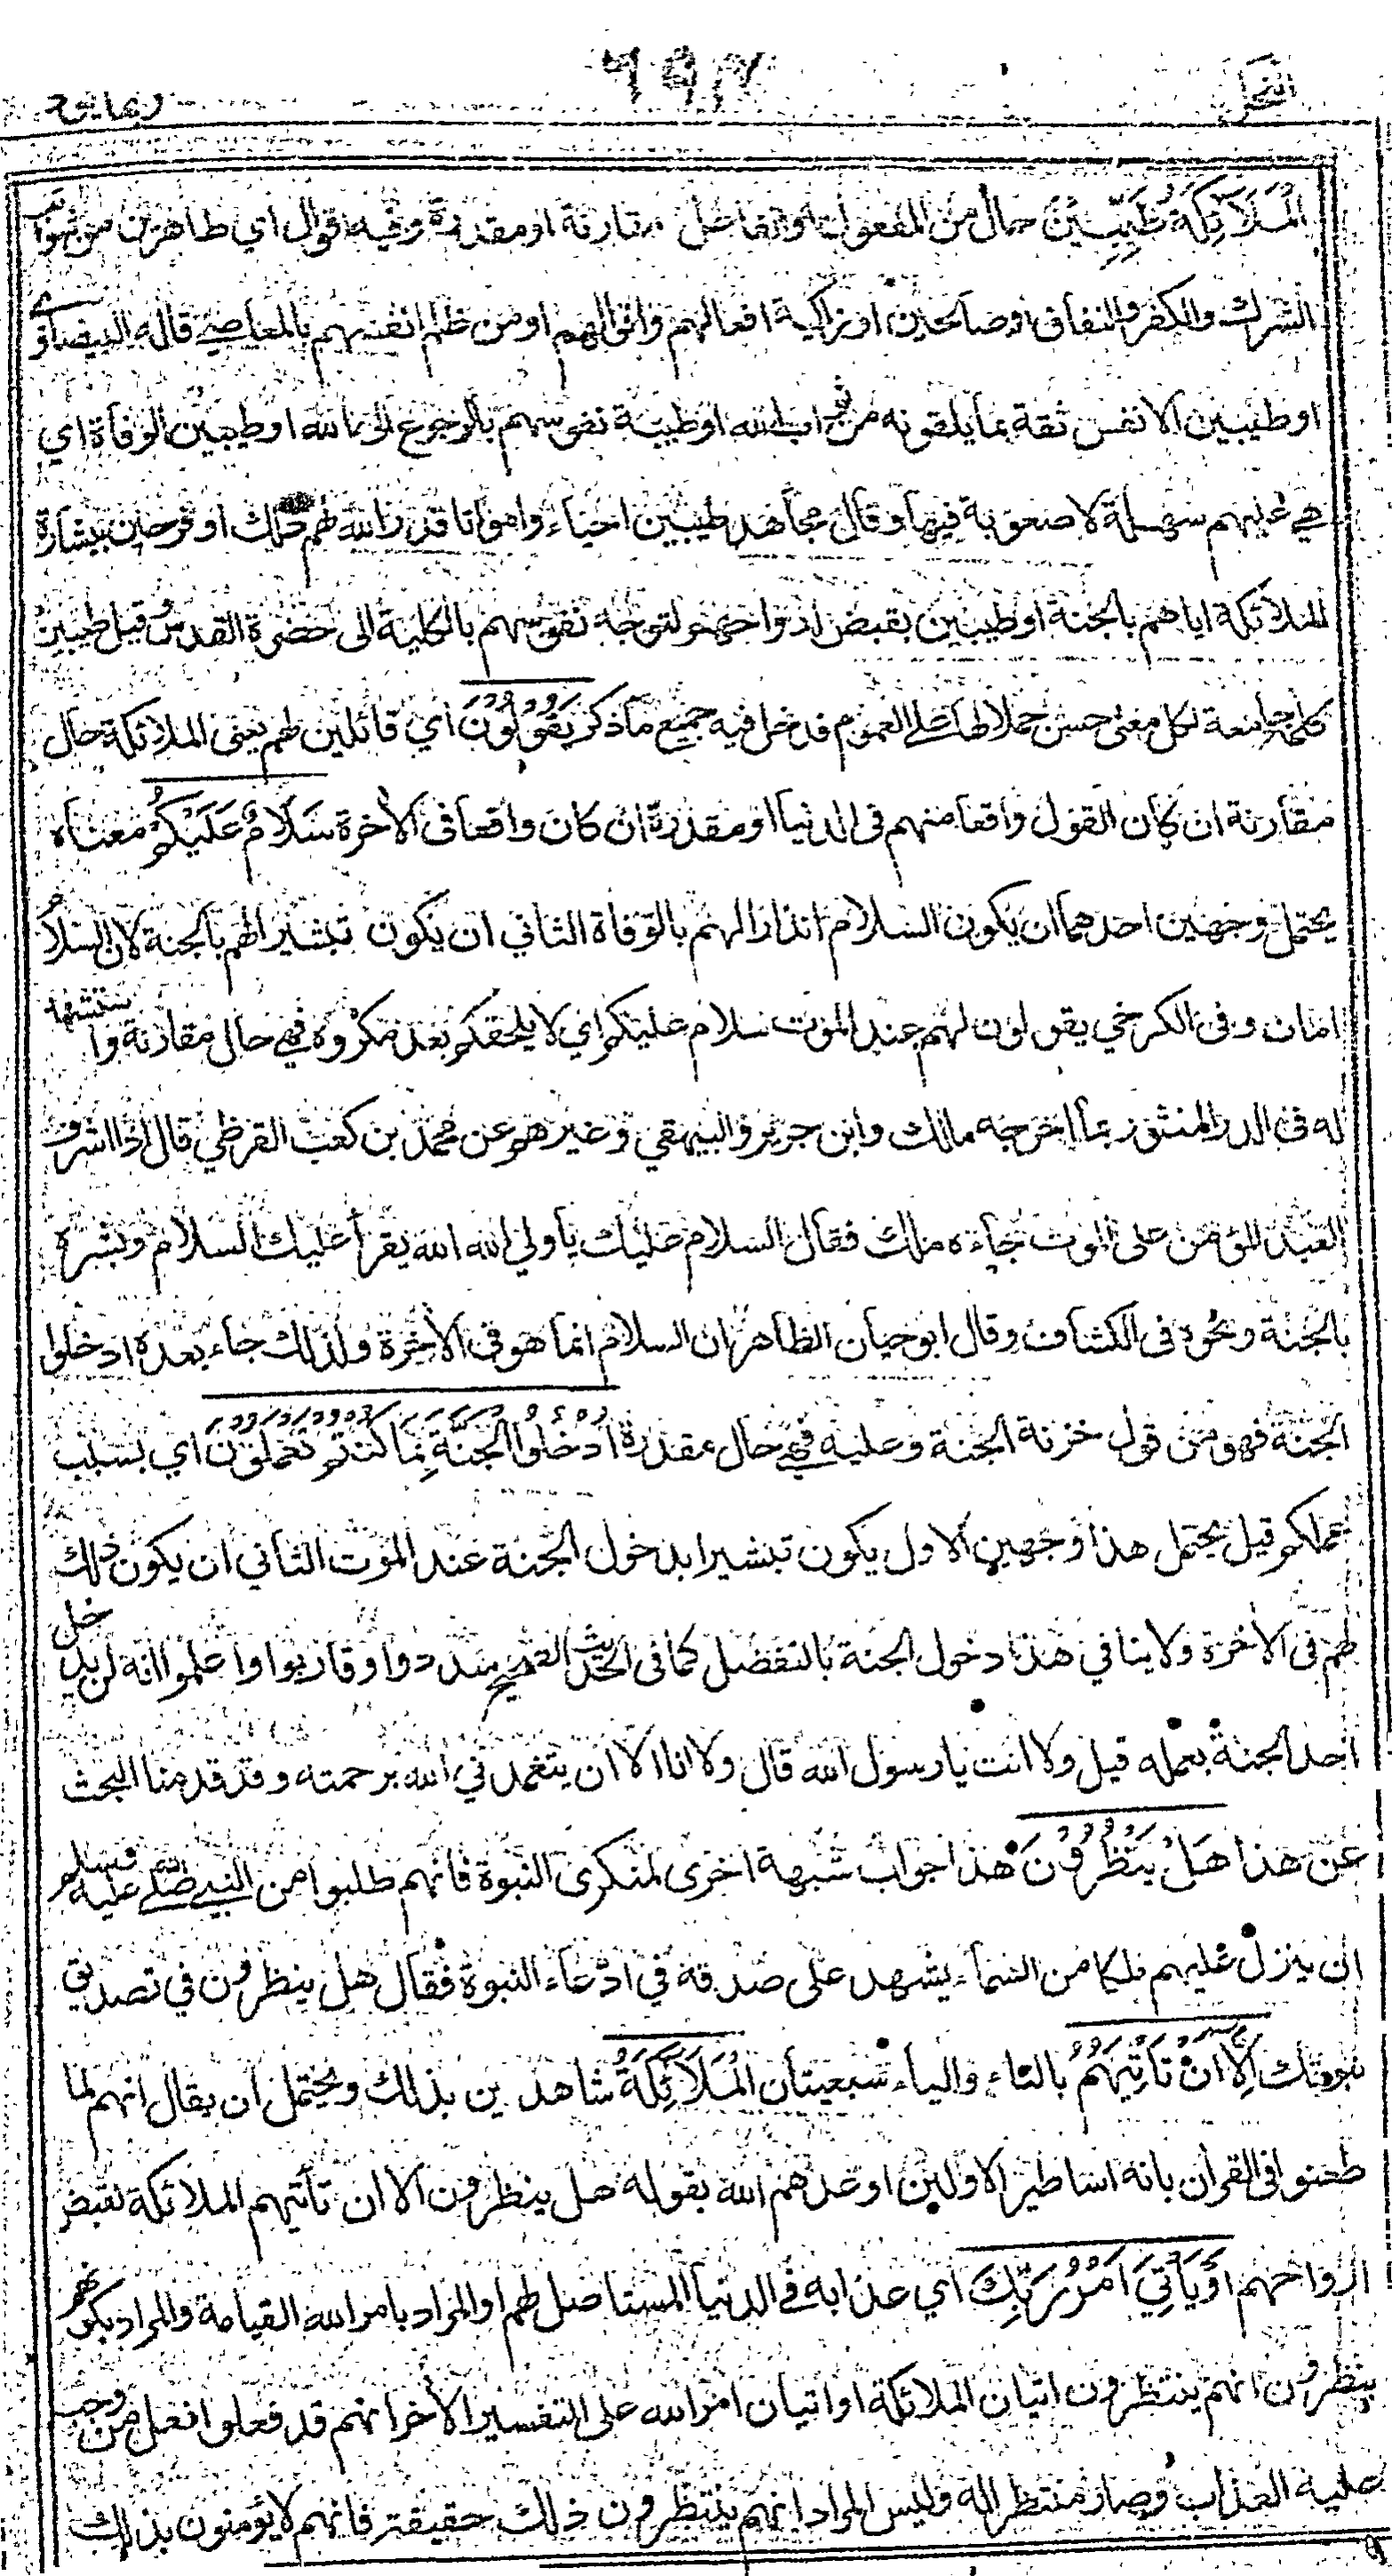 النحل
ربما
الْمَلَائِكَةُ طَيِّبِيْنَ حال من المفعول او الفاعل مقارنة او مقدرة وفيه اقوال اي طاهرين من شوائب
الشرك والكفر والنفاق او صالحين او زاكية افعالهم واقوالهم او من ظلم انفسهم بالمعاصي قاله البيضاوي
او طيبين الانفس ثقة بما يلقونه من ثواب الله او طيبة نفوسهم بالرجوع الى الله او طيبين الوفاة اي
هي عليهم سهلة لا صعوبة فيها وقال مجاهد طيبين احياء وامواتا قدر الله لهم ذلك او فرحين ببشارة
الملائكة اياهم بالجنة او طيبين بقبض ارواحهم لتوجه نفوسهم بالكلية الى حضرة القدس قيل طيبين
كلمة جامعة لكل معنى حسن حملا لها على العموم فدخل فيه جميع ما ذكر يَقُوْلُوْنَ اي قائلين لهم يعني الملائكة حال
مقارنة ان كان القول واقعا منهم في الدنيا او مقدرة ان كان واقعا في الآخرة سَلَامٌ عَلَيْكُمُ معناه
يحتمل وجهين احدهما ان يكون السلام انذارا لهم بالوفاة الثاني ان يكون تبشيرا لهم بالجنة لان السلام
امان وفي الكرخي يقولون لهم عند الموت سلام عليكم اي لا يلحقكم بعد مكروه فهي حال مقارنة واستشهد
له في الدر المنثور بما اخرجه مالك وابن جرير والبيهقي وغيرهم عن محمد بن كعب القرظي قال اذا اشرف
العبد المؤمن على الموت جاءه ملك فقال السلام عليك يا ولي الله الله يقرأ عليك السلام وبشره
بالجنة ونحوه في الكشاف وقال ابو حيان الظاهر ان السلام انما هو في الآخرة ولذلك جاء بعده ادخلوا
الجنة فهو من قول خزنة الجنة وعليه فهي حال مقدرة ادْخُلُوا الْجَنَّةَ بِمَا كُنْتُمْ تَعْمَلُوْنَ اي بسبب
عملكم قيل يحتمل هذا وجهين الاول يكون تبشيرا بدخول الجنة عند الموت الثاني ان يكون ذلك
لهم في الآخرة ولا ينافي هذا دخول الجنة بالتفضل كما في الحديث الصحيح سددوا وقاربوا واعلموا انه لن يدخل
احد الجنة بعمله قيل ولا انت يا رسول الله قال ولا انا الا ان يتغمدني الله برحمته وقد قدمنا البحث
عن هذا هَلْ يَنْظُرُوْنَ هذا جواب شبهة اخرى لمنكري النبوة فانهم طلبوا من النبي صلى الله عليه وسلم
ان ينزل عليهم ملكا من السماء يشهد على صدقه في ادعاء النبوة فقال هل ينظرون في تصديق
نبوتك اِلَّا اَنْ تَأْتِيَهُمُ بالتاء والياء سبعيتان الْمَلَائِكَةُ شاهدين بذلك ويحتمل ان يقال انهم لما
طعنوا في القران بانه اساطير الاولين اوعدهم الله بقوله هل ينظرون الا ان تأتيهم الملائكة لقبض
ارواحهم اَوْ يَأْتِيَ اَمْرُ رَبِّكَ اي عذابه في الدنيا المستاصل لهم او المراد بامر الله القيامة والمراد بكونهم
ينظرون انهم ينتظرون اتيان الملائكة او اتيان امر الله على التفسير الآخر انهم قد فعلوا فعل من وجب
عليه العذاب وصار منتظرا له وليس المراد انهم ينتظرون ذلك حقيقة فانهم لا يؤمنون بذلك